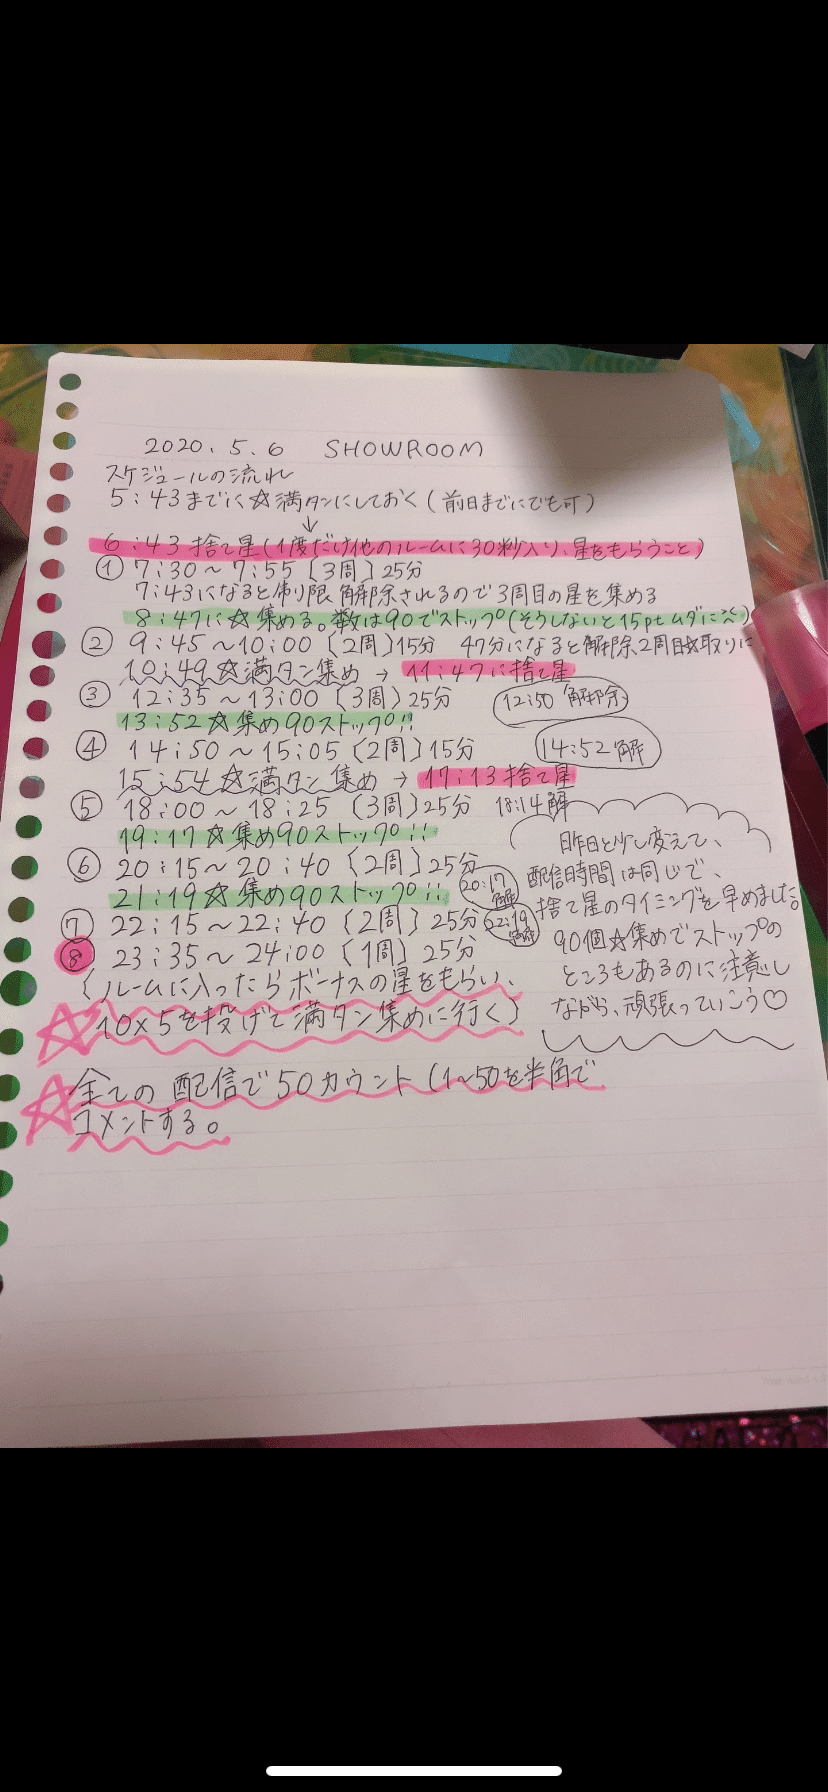 2020.5.6 SHOWROOM
スケジュールの流れ
5:43までに☆満タンにしておく(前日までにでも可)
↓
6:43捨て星(1度だけ他のルームに30秒入り、星をもらうこと)
① 7:30〜7:55〔3周〕25分
7:43になると制限解除されるので3周目の星を集める
8:47に☆集める。数は90でストップ(そうしないと15ptムダに
② 9:45〜10:00〔2周〕15分 47分になると解除、2周目☆取りに
10:49☆満タン集め→11:47に捨て星
③ 12:35〜13:00〔3周〕25分 12:50解除
13:52☆集め90ストップ!!
④ 14:50〜15:05〔2周〕15分 14:52解
15:54☆満タン集め→17:13捨て星
⑤ 18:00〜18:25〔3周〕25分 18:14解
19:17☆集め90ストップ!!
⑥ 20:15〜20:40〔2周〕25分 20:17解除
21:19☆集め90ストップ!!
⑦ 22:15〜22:40〔2周〕25分 22:19解除
⑧ 23:35〜24:00〔1周〕25分
(ルームに入ったらボーナスの星をもらい、
☆10×5を投げて満タン集めに行く)
☆全ての配信で50カウント(1〜50を半角で
コメントする。
昨日と少し変えて、
配信時間は同じで、
捨て星のタイミングを早めました。
90個☆集めでストップの
ところもあるのに注意し
ながら、頑張っていこう♡